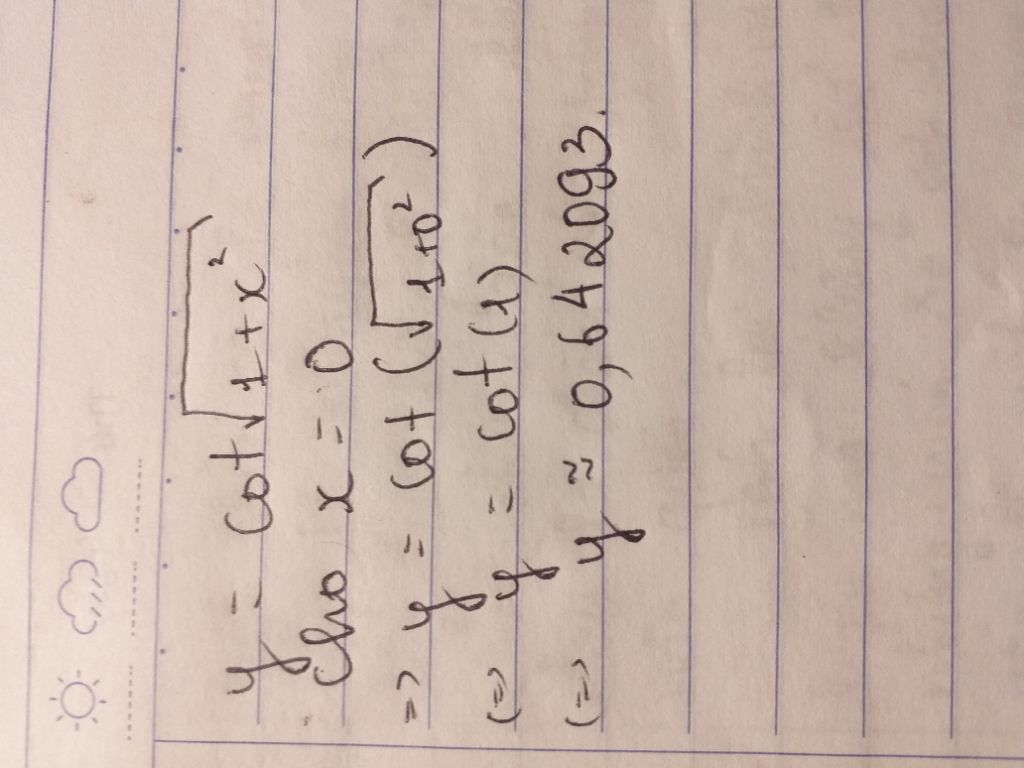 y = cot√(1+x²)
Cho x = 0
=> y = cot (√(1+0²))
<=> y = cot (1)
<=> y ≈ 0,642093.